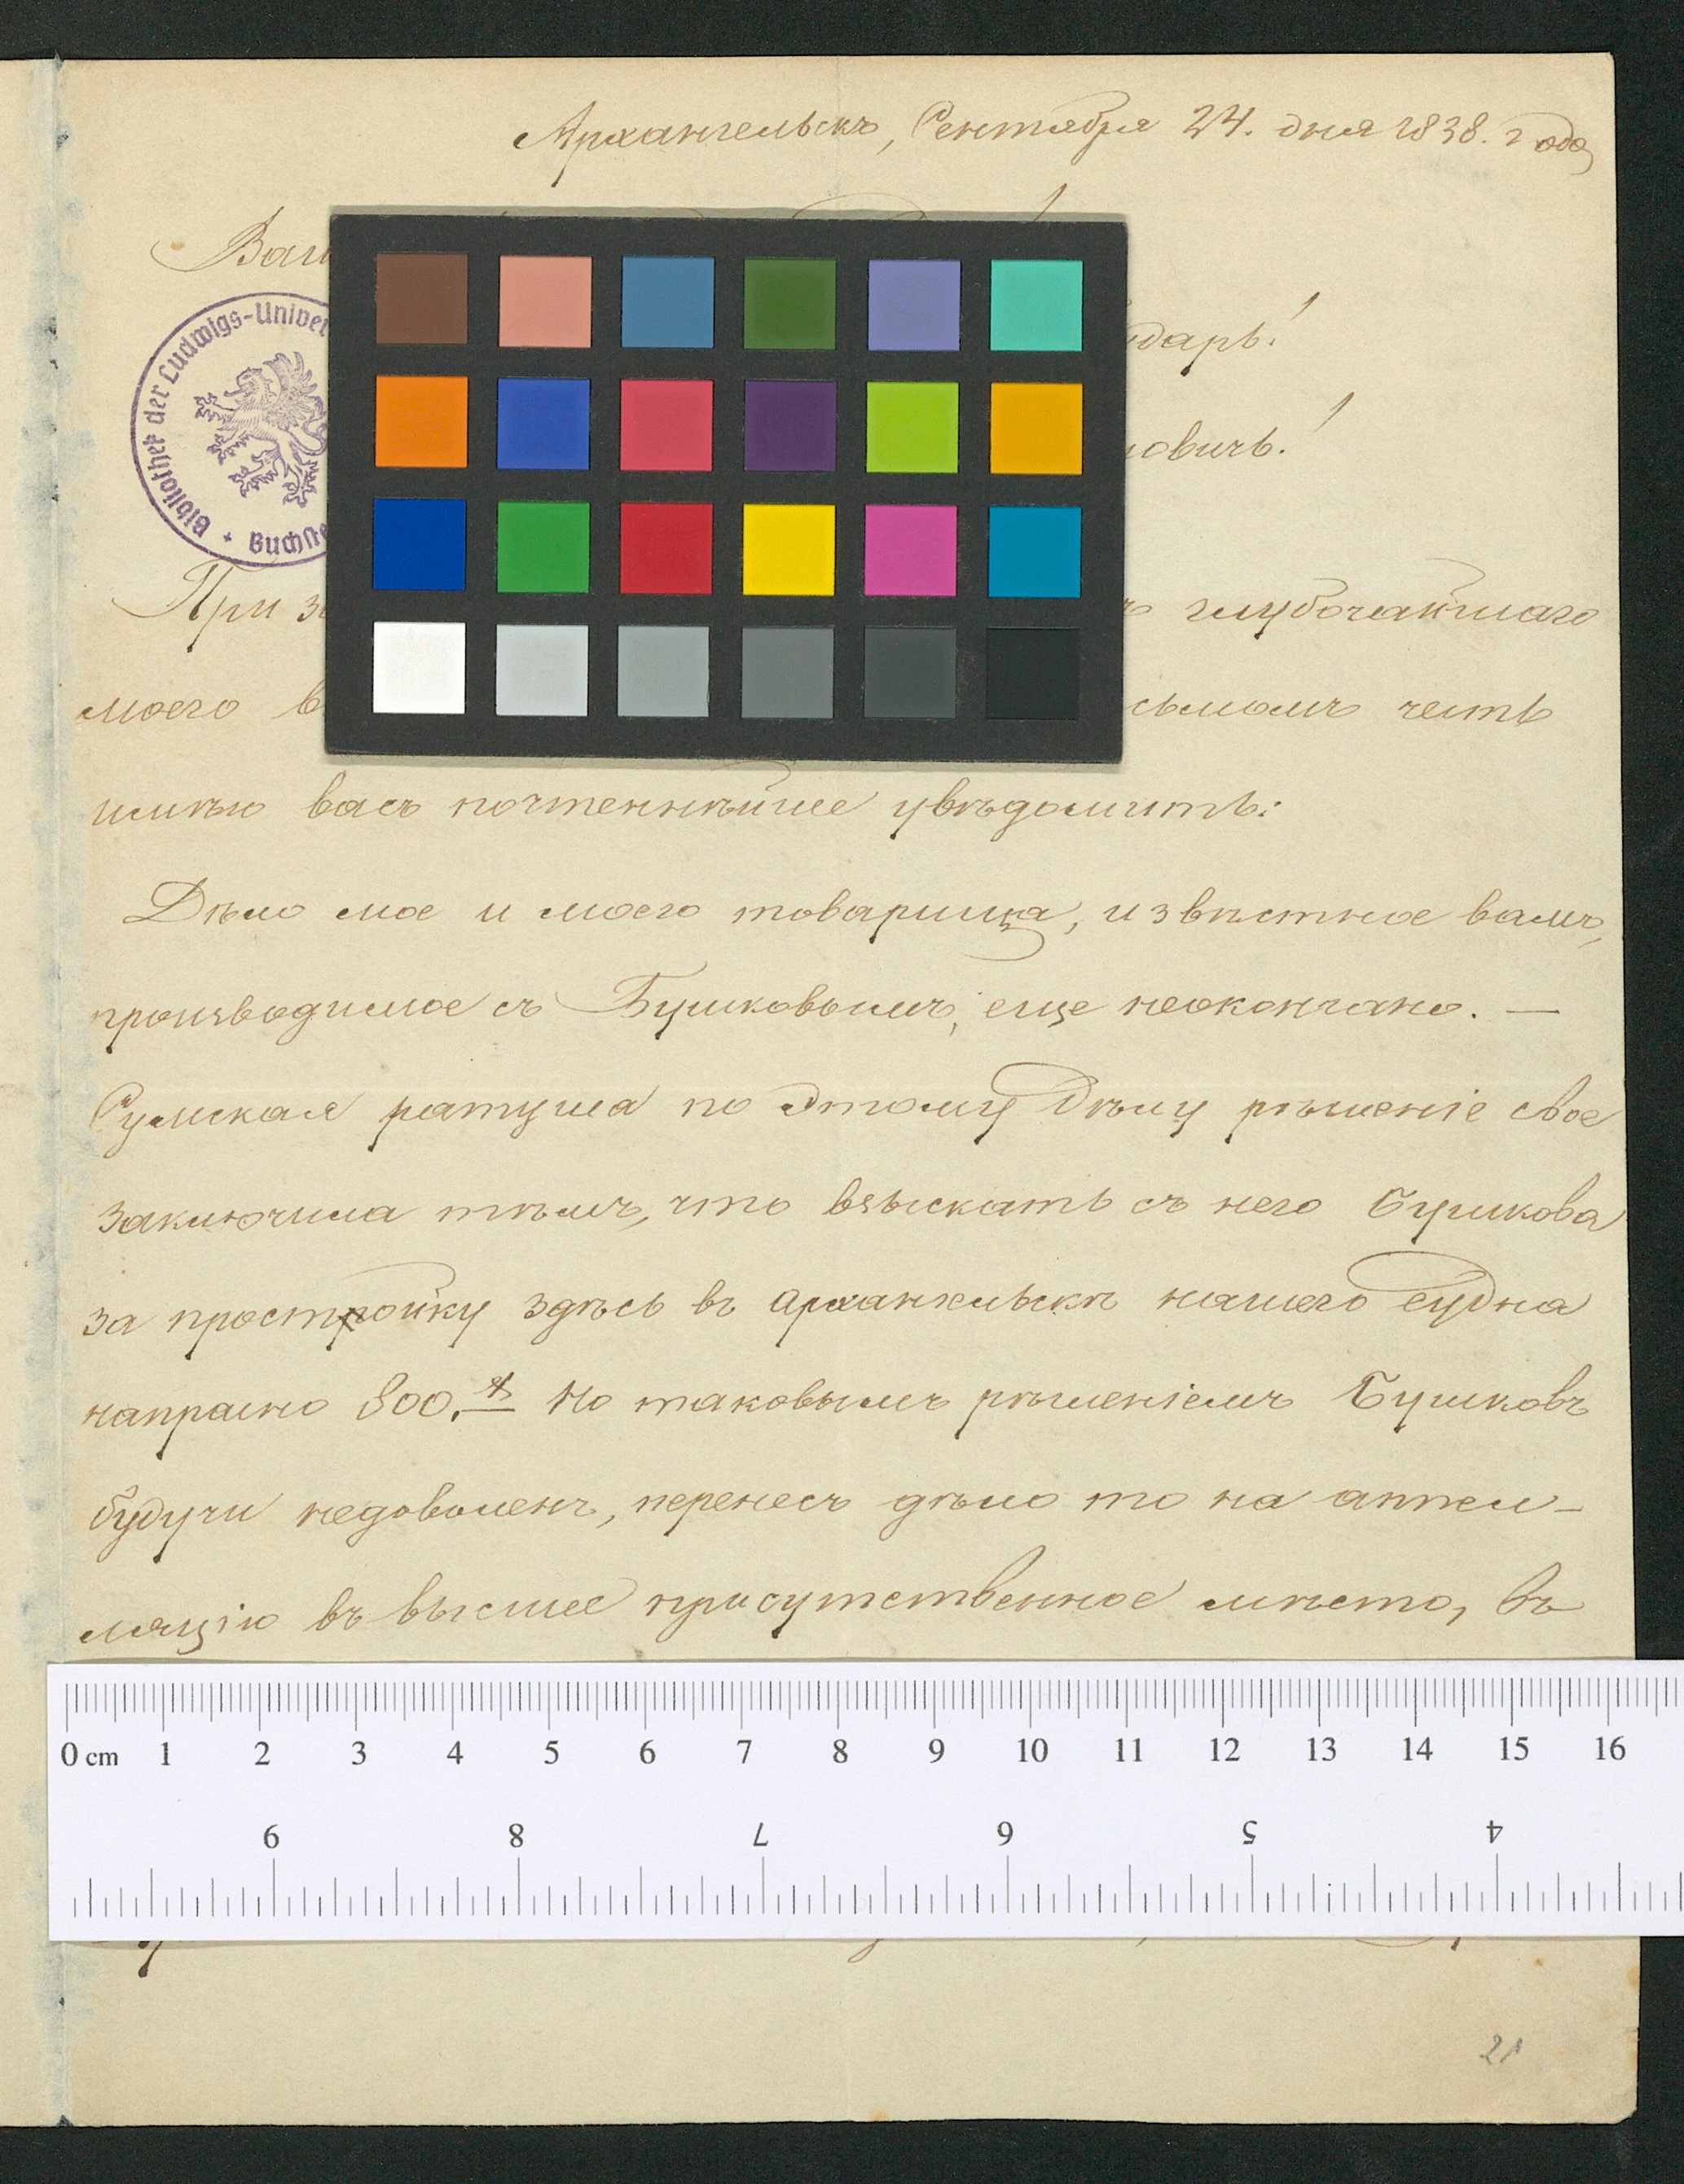 Архангельскъ, Сентября 24. дня 1838. года
Bibliothek der Ludwigs-
При
глубочайшаго
моего
честь
имѣю васъ почтеннѣйше увѣдомить:
Дѣло мое и моего товарища, извѣстное вамъ,
производимое съ Бушковымъ, еще неокончано. —
Сумская ратуша по этому дѣлу рѣшеніе свое
заключила тѣмъ, что взыскать съ него Бушкова
за простройку здѣсь въ Архангельскѣ нашего судна
напрасно 800. Но таковымъ рѣшеніемъ Бушковъ
будучи недоволенъ, перенесъ дѣло то на аппел-
ляцію въ высшее присутственное мѣсто, въ
0 cm 1 2 3 4 5 6 7 8 9 10 11 12 13 14 15 16
9 8 7 6 5 4
21